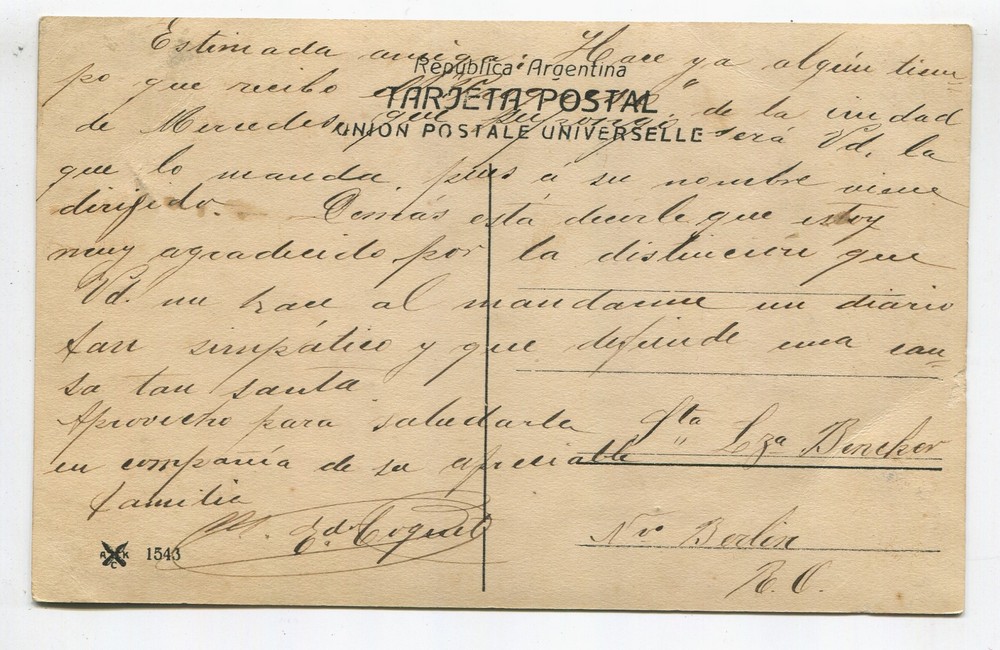 Estimada amiga: Hace ya algún tiem-
República Argentina
po que recibo de la ciudad
TARJETA POSTAL
de Mercedes, que será Vd. la
UNION POSTALE UNIVERSELLE
que lo manda, pues á su nombre viene
dirijido. Demás está decirle que estoy
muy agradecido por la distincion que
Vd. me hace al mandarme un diario
tan simpático y que defiende una cau-
sa tan santa
Aprovecho para saludarla
en compañía de su apreciable
familia
Sta
Bencker
Nvo Berlin
R. O.
1543